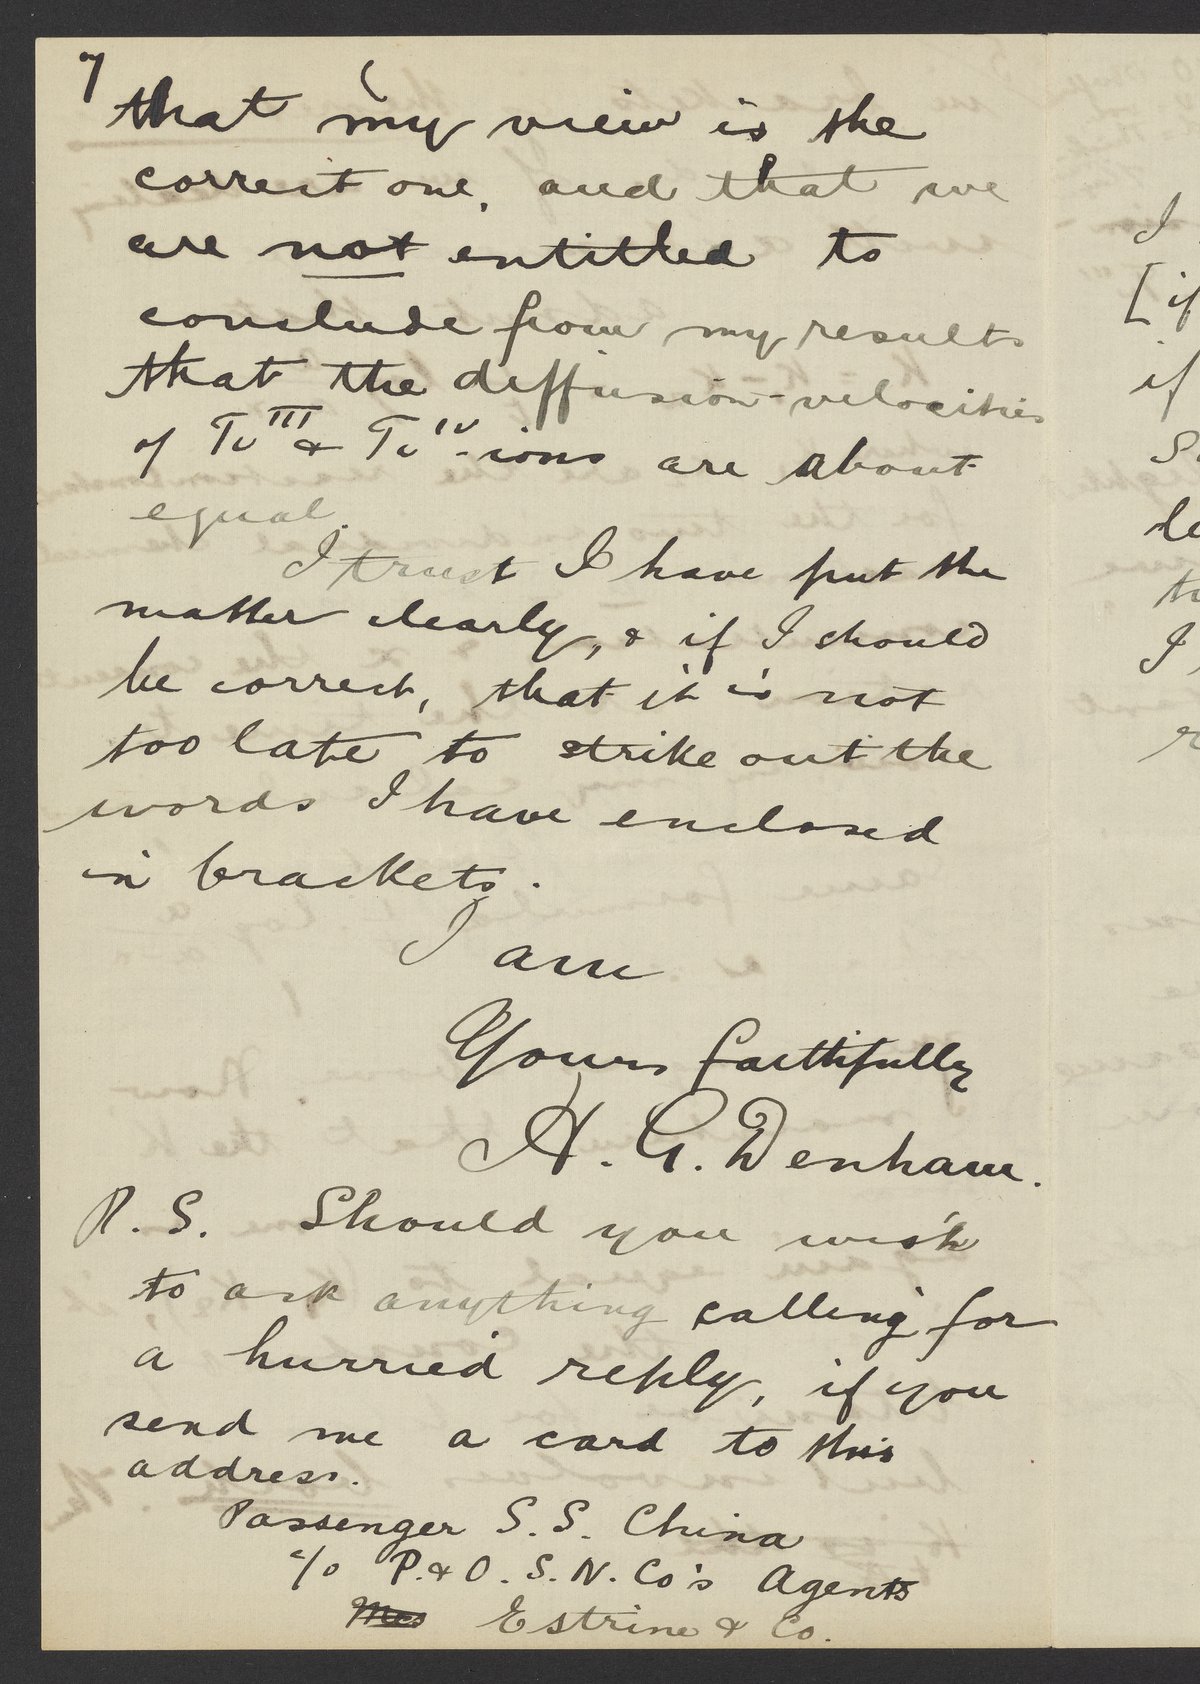 7
that my view is the
correct one, and that we
are not entitled to
conclude from my results
that the diffusion-velocities
of Ti III & Ti IV-ions are about
equal.
I trust I have put the
matter clearly, & if I should
be correct, that it is not
too late to strike out the
words I have enclosed
in brackets.
I am
Yours faithfully
H. G. Denham.
P. S. Should you wish
to ask anything calling for
a hurried reply, if you
send me a card to this
address.
Passenger S. S. China
c/o P. & O. S. N. Co's Agents
Estrine & Co.
I
[if
if
I